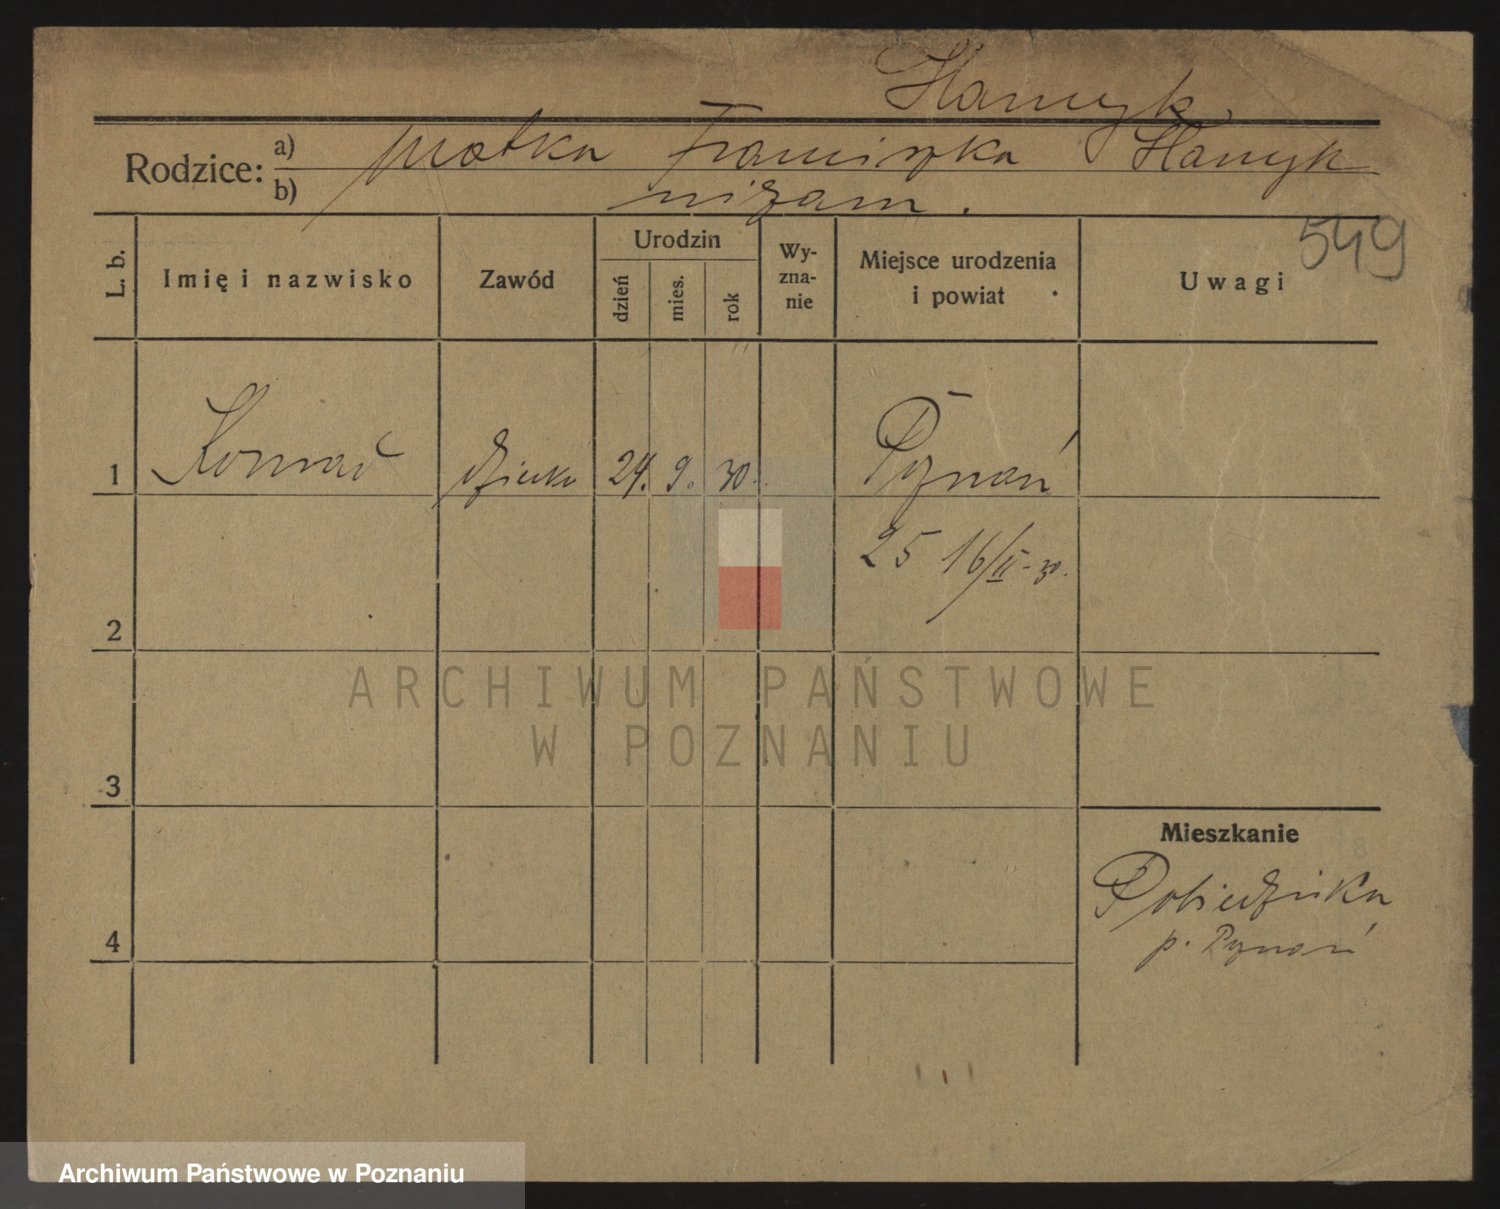 Hamryk
Rodzice: a) matka Franciszka Hamryk
b) niezam.
549
L. b. Imię i nazwisko Zawód Urodzin dzień mies. rok Wy-zna-nie Miejsce urodzenia i powiat Uwagi
1 Konrad dziecko 24. 9. 30. Poznań
25 16/II-30.
2
ARCHIWUM PAŃSTWOWE
W POZNANIU
3
Mieszkanie
Pobiedziska
4 p. Poznań
Archiwum Państwowe w Poznaniu